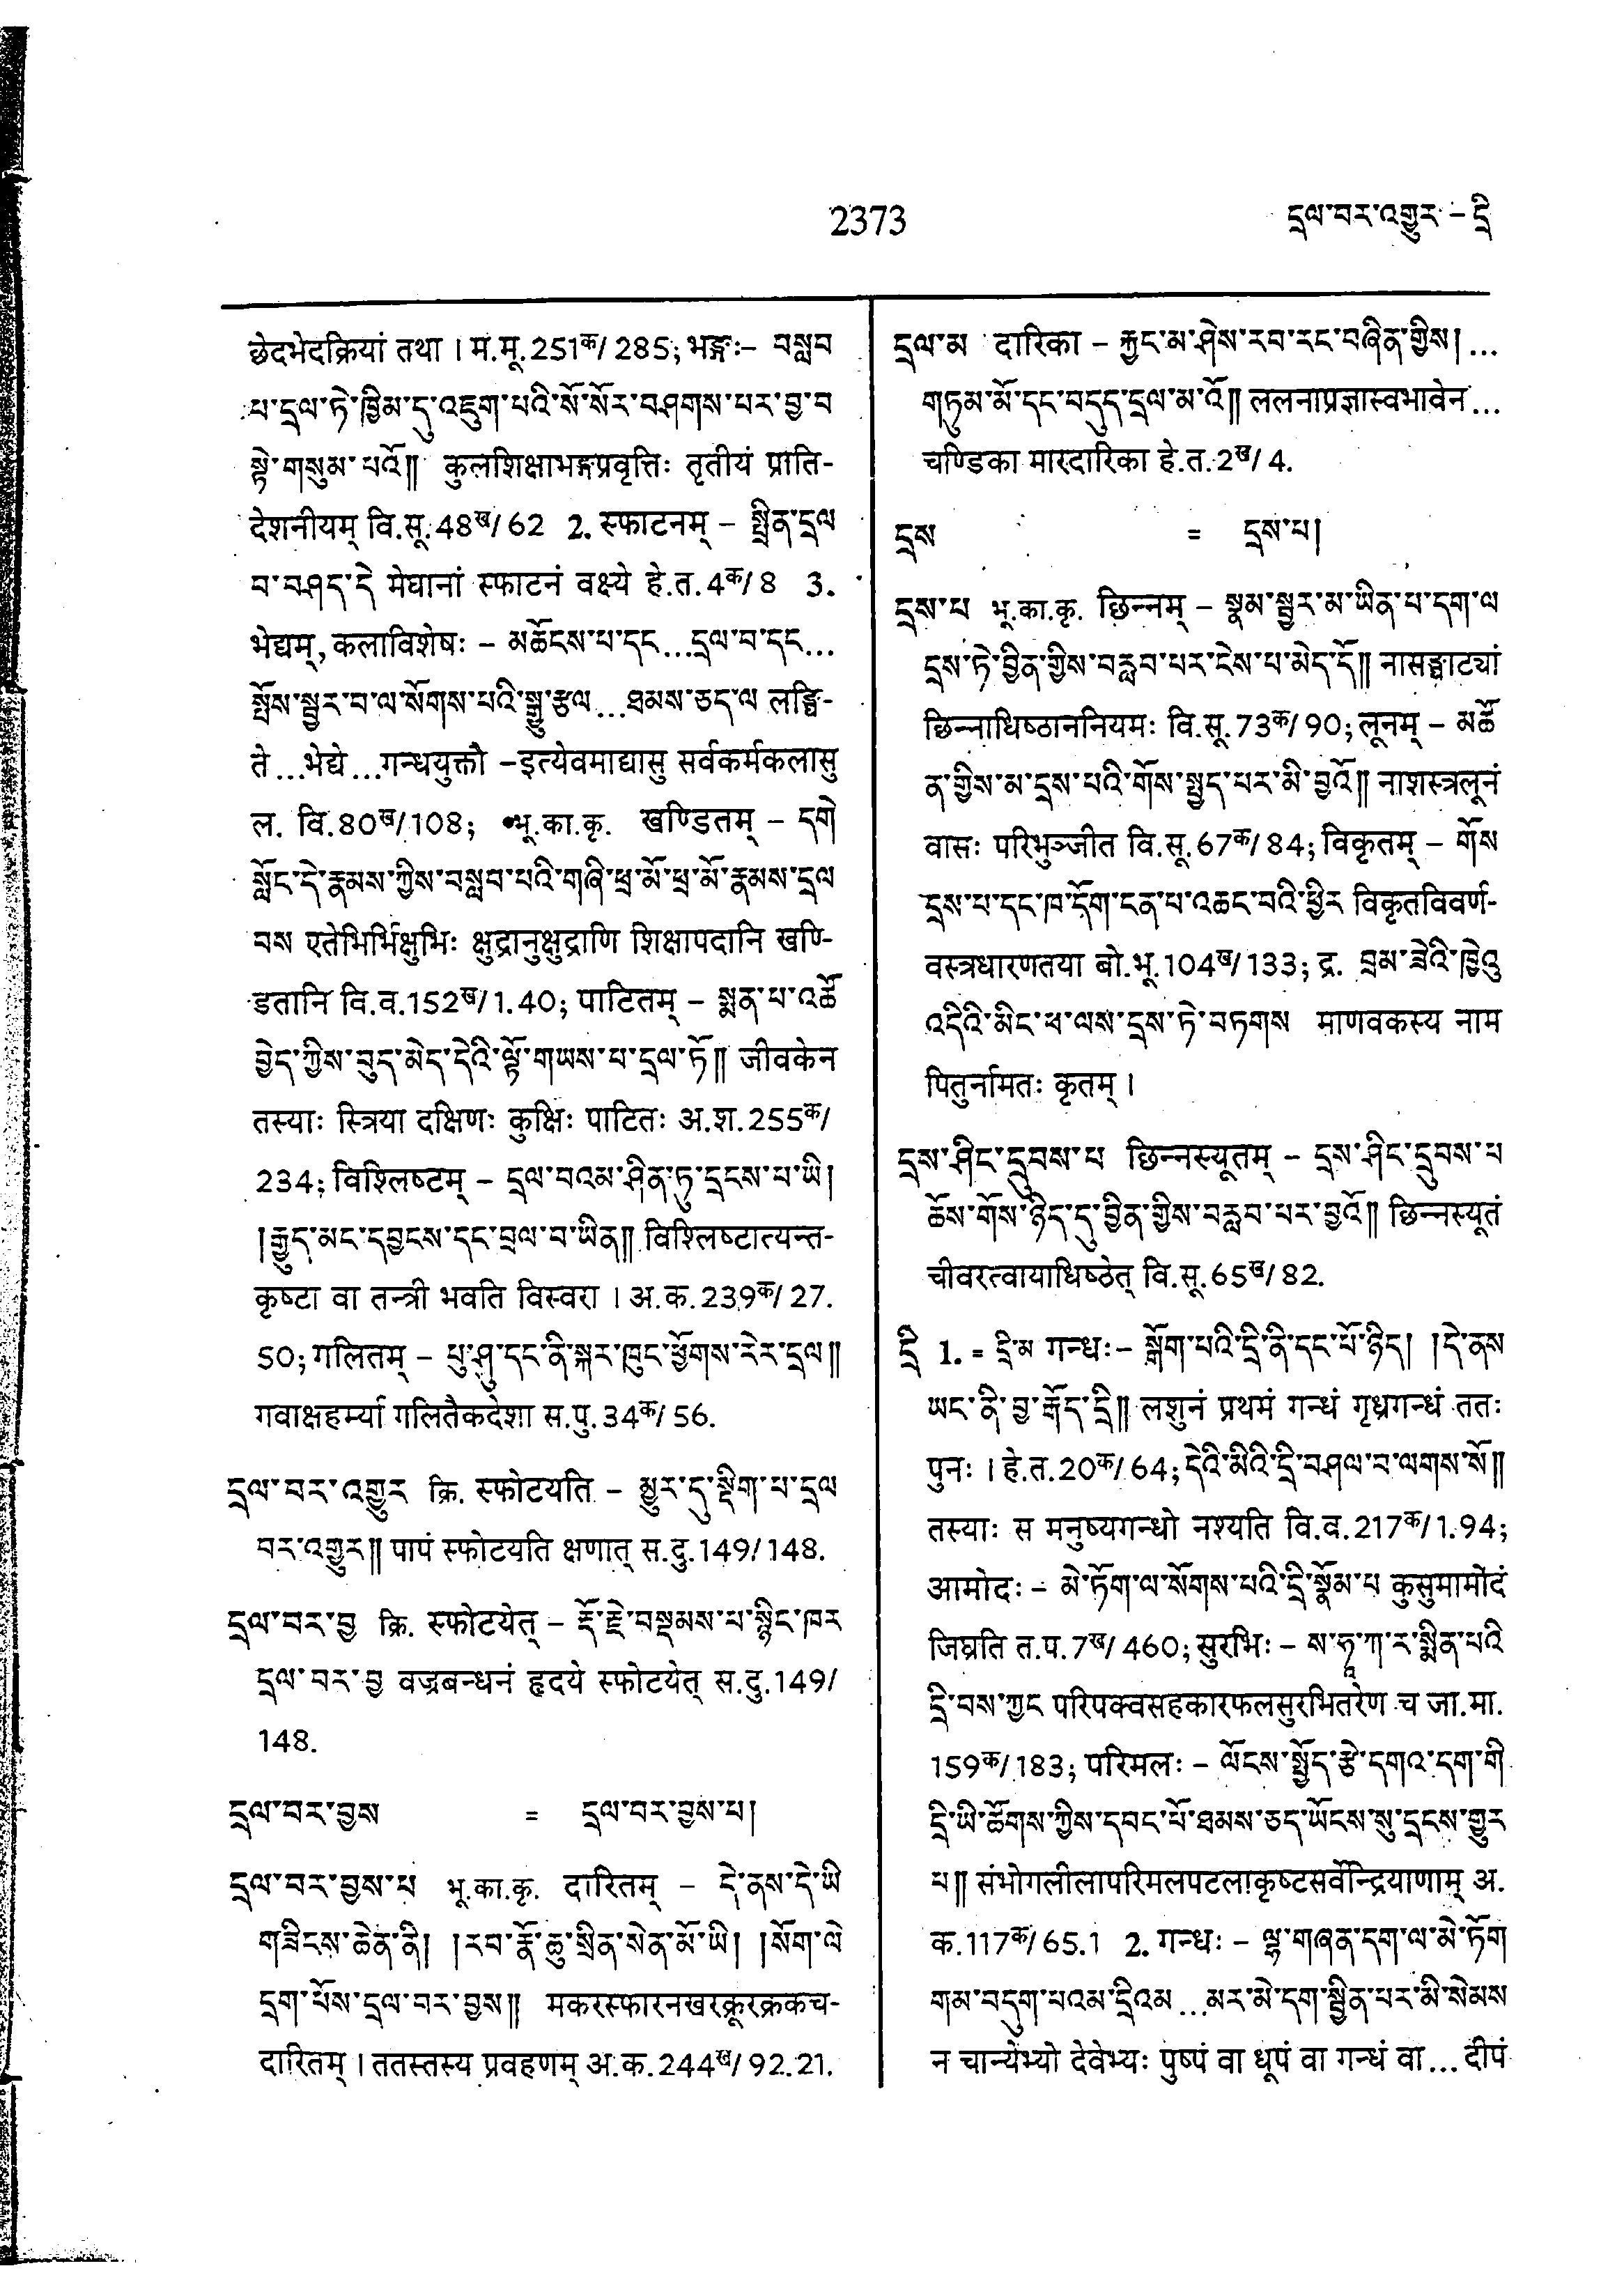 2373
དྲལ་བར་འགྱུར – དྲི
छेदभेदक्रियां तथा । म.मू.251क/285; भङ्गः– བསླབ
པ་དྲལ་ཏེ་ཁྱིམ་དུ་འཇུག་པའི་སོ་སོར་བཤགས་པར་བྱ་བ
སྟེ་གསུམ་པའོ།། कुलशिक्षाभङ्गप्रवृत्तिः तृतीयं प्राति-
देशनीयम् वि.सू.48ख/62 2. स्फाटनम् – སྤྲིན་དྲལ
བ་བཤད་དེ मेघानां स्फाटनं वक्ष्ये हे.त.4क/8 3.
भेद्यम्, कलाविशेषः – མཆོངས་པ་དང...དྲལ་བ་དང...
སྤོས་སྦྱར་བ་ལ་སོགས་པའི་སྒྱུ་རྩལ...ཐམས་ཅད་ལ लङ्घि-
ते ...भेद्ये ...गन्धयुक्तौ –इत्येवमाद्यासु सर्वकर्मकलासु
ल. वि.80ख/108; •भू.का.कृ. खण्डितम् – དགེ
སློང་དེ་རྣམས་ཀྱིས་བསླབ་པའི་གཞི་ཕྲ་མོ་ཕྲ་མོ་རྣམས་དྲལ
བས एतेभिर्भिक्षुभिः क्षुद्रानुक्षुद्राणि शिक्षापदानि खण्डि-
डतानि वि.व.152ख/1.40; पाटितम् – སྨན་པ་འཚོ
བྱེད་ཀྱིས་བུད་མེད་དེའི་ལྟོ་གཡས་པ་དྲལ་ཏོ།། जीवकेन
तस्याः स्त्रिया दक्षिणः कुक्षिः पाटितः अ.श.255क/
234; विश्लिष्टम् – དྲལ་བའམ་ཤིན་ཏུ་དྲངས་པ་ཡི།
།རྒྱུད་མང་དབྱངས་དང་བྲལ་བ་ཡིན།། विश्लिष्टात्यन्त-
कृष्टा वा तन्त्री भवति विस्वरा । अ.क.239क/27.
50; गलितम् – པུ་ཤུ་དང་ནི་སྐར་ཁུང་ཕྱོགས་རེར་དྲལ།།
गवाक्षहर्म्या गलितैकदेशा स.पु.34क/56.
དྲལ་བར་འགྱུར क्रि. स्फोटयति – མྱུར་དུ་སྡིག་པ་དྲལ
བར་འགྱུར།། पापं स्फोटयति क्षणात् स.दु.149/148.
དྲལ་བར་བྱ क्रि. स्फोटयेत् – རྡོ་རྗེ་བསྡམས་པ་སྙིང་ཁར
དྲལ་བར་བྱ वज्रबन्धनं हृदये स्फोटयेत् स.दु.149/
148.
དྲལ་བར་བྱས = དྲལ་བར་བྱས་པ།
དྲལ་བར་བྱས་པ भू.का.कृ. दारितम् – དེ་ནས་དེ་ཡི
གཟིངས་ཆེན་ནི། །རབ་རྣོ་ཆུ་སྲིན་སེན་མོ་ཡི། །སོག་ལེ
དྲག་པོས་དྲལ་བར་བྱས།། मकरस्फारनखरक्रूरक्रकच-
दारितम् । ततस्तस्य प्रवहणम् अ.क.244ख/92.21.
དྲལ་མ दारिका – རྐྱང་མ་ཤེས་རབ་རང་བཞིན་གྱིས།...
གཏུམ་མོ་དང་བདུད་དྲལ་མ་འོ།། ललनाप्रज्ञास्वभावेन...
चण्डिका मारदारिका हे.त.2ख/4.
དྲས = དྲས་པ།
དྲས་པ भू.का.कृ. छिन्नम् – སྣམ་སྦྱར་མ་ཡིན་པ་དག་ལ
དྲས་ཏེ་བྱིན་གྱིས་བརླབ་པར་ངེས་པ་མེད་དོ།། नासङ्घाट्यां
छिन्नाधिष्ठाननियमः वि.सू.73क/90; लूनम् – མཚོ
ན་གྱིས་མ་དྲས་པའི་གོས་སྤྱད་པར་མི་བྱའོ།། नाशस्त्रलूनं
वासः परिभुञ्जीत वि.सू.67क/84; विकृतम् – གོས
དྲས་པ་དང་ཁ་དོག་ངན་པ་འཆང་བའི་ཕྱིར विकृतविवर्ण-
वस्त्रधारणतया बो.भू.104ख/133; द्र. བྲམ་ཟེའི་ཁྱེའུ
འདིའི་མིང་ཕ་ལས་དྲས་ཏེ་བཏགས माणवकस्य नाम
पितुर्नामतः कृतम् ।
དྲས་ཤིང་དྲུབས་པ छिन्नस्यूतम् – དྲས་ཤིང་དྲུབས་པ
ཆོས་གོས་ཉིད་དུ་བྱིན་གྱིས་བརླབ་པར་བྱའོ།། छिन्नस्यूतं
चीवरत्वायाधिष्ठेत् वि.सू.65ख/82.
དྲི 1. = དྲི་མ गन्धः – སྒོག་པའི་དྲི་ནི་དང་པོ་ཉིད། །དེ་ནས
ཡང་ནི་བྱ་རྒོད་དྲི།། लशुनं प्रथमं गन्धं गृध्रगन्धं ततः
पुनः । हे.त.20क/64; དེའི་མིའི་དྲི་བཤལ་བ་ལགས་སོ།།
तस्याः स मनुष्यगन्धो नश्यति वि.व.217क/1.94;
आमोदः – མེ་ཏོག་ལ་སོགས་པའི་དྲི་སྣོམ་པ कुसुमामोदं
जिघ्रति त.प.7ख/460; सुरभिः – ས་ཧཱ་ཀ་ར་སྨིན་པའི
དྲི་བས་ཀྱང परिपक्वसहकारफलसुरभितरेण च जा.मा.
159क/183; परिमलः – ལོངས་སྤྱོད་རྩེ་དགའ་དག་གི
དྲི་ཡི་ཚོགས་ཀྱིས་དབང་པོ་ཐམས་ཅད་ཡོངས་སུ་དྲངས་གྱུར
པ།། संभोगलीलापरिमलपटलाकृष्टसर्वेन्द्रियाणाम् अ.
क.117क/65.1 2. गन्धः – ལྷ་གཞན་དག་ལ་མེ་ཏོག
གམ་བདུག་པའམ་དྲིའམ...མར་མེ་དག་སྦྱིན་པར་མི་སེམས
न चान्येभ्यो देवेभ्यः पुष्पं वा धूपं वा गन्धं वा... दीपं